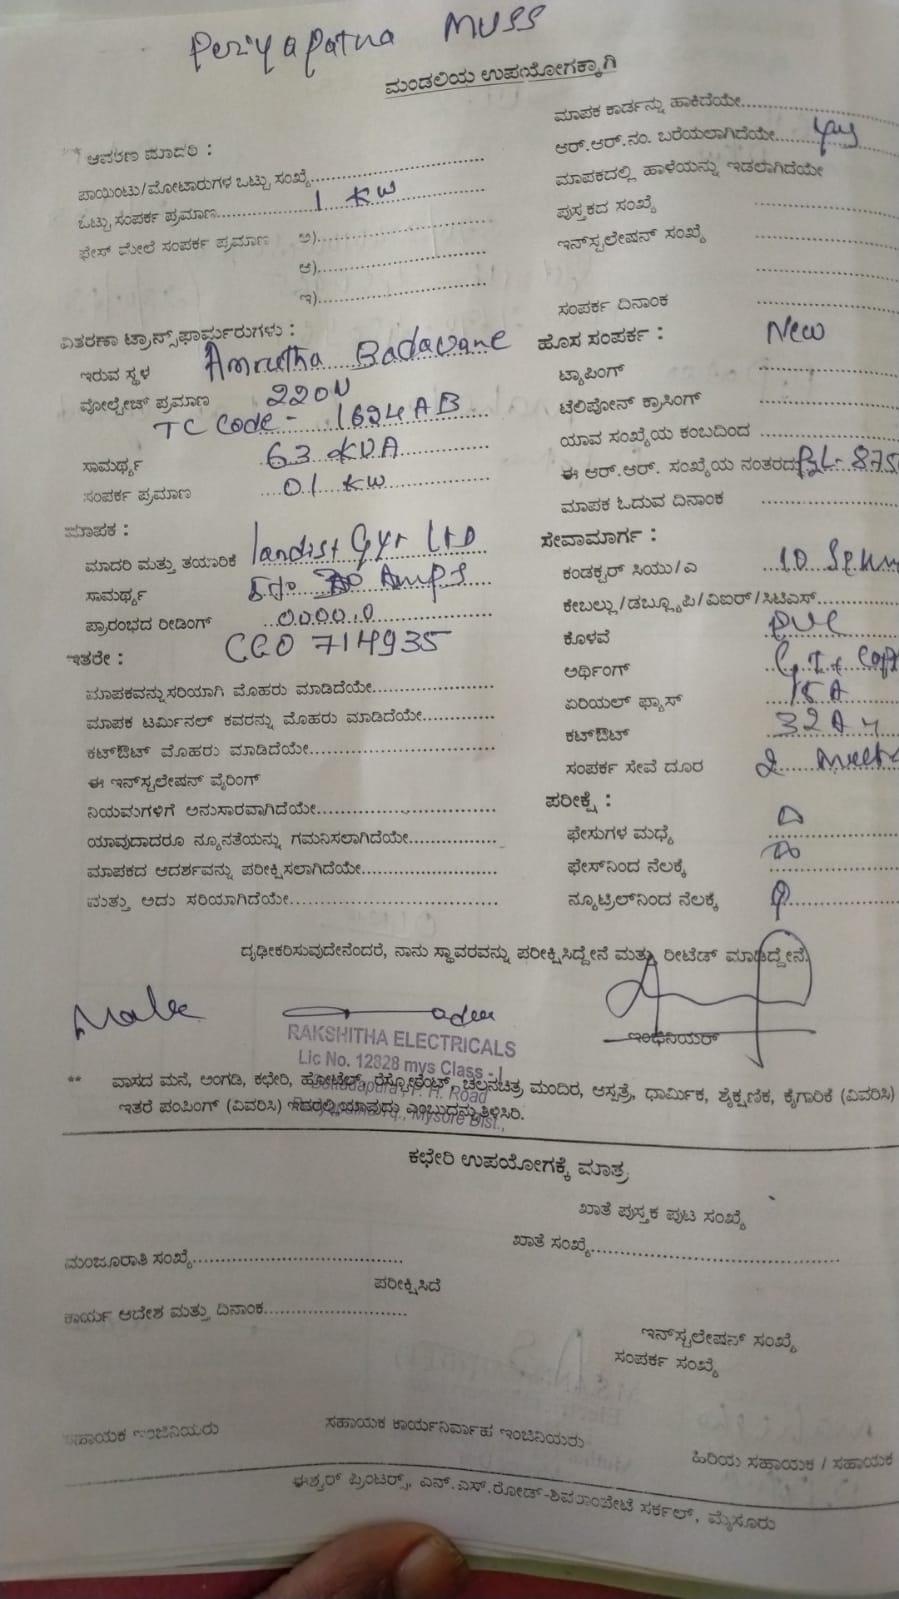 Periyapatna MUSS
ಮಂಡಲಿಯ ಉಪಯೋಗಕ್ಕಾಗಿ
ಆವರಣ ಮಾದರಿ :
ಪಾಯಿಂಟು/ಮೋಟಾರುಗಳ ಒಟ್ಟು ಸಂಖ್ಯೆ
ಒಟ್ಟು ಸಂಪರ್ಕ ಪ್ರಮಾಣ 1 KW
ಫೇಸ್ ಮೇಲೆ ಸಂಪರ್ಕ ಪ್ರಮಾಣ ಅ)
ಆ)
ಇ)
ವಿತರಣಾ ಟ್ರಾನ್ಸ್‌ಫಾರ್ಮರುಗಳು :
ಇರುವ ಸ್ಥಳ Amrutha Badavane
ವೋಲ್ಟೇಜ್ ಪ್ರಮಾಣ 220V
TC Code - 1624AB
ಸಾಮರ್ಥ್ಯ 63 KVA
ಸಂಪರ್ಕ ಪ್ರಮಾಣ 01 KW
ಮಾಪಕ :
ಮಾದರಿ ಮತ್ತು ತಯಾರಿಕೆ landist Gyr LtD
ಸಾಮರ್ಥ್ಯ Amps
ಪ್ರಾರಂಭದ ರೀಡಿಂಗ್ 0000.0
ಇತರೇ : CGO 714935
ಮಾಪಕವನ್ನು ಸರಿಯಾಗಿ ಮೊಹರು ಮಾಡಿದೆಯೇ
ಮಾಪಕ ಟರ್ಮಿನಲ್ ಕವರನ್ನು ಮೊಹರು ಮಾಡಿದೆಯೇ
ಕಟ್‌ಔಟ್ ಮೊಹರು ಮಾಡಿದೆಯೇ
ಈ ಇನ್‌ಸ್ಟಲೇಷನ್ ವೈರಿಂಗ್
ನಿಯಮಗಳಿಗೆ ಅನುಸಾರವಾಗಿದೆಯೇ
ಯಾವುದಾದರೂ ನ್ಯೂನತೆಯನ್ನು ಗಮನಿಸಲಾಗಿದೆಯೇ
ಮಾಪಕದ ಆದರ್ಶವನ್ನು ಪರೀಕ್ಷಿಸಲಾಗಿದೆಯೇ
ಮತ್ತು ಅದು ಸರಿಯಾಗಿದೆಯೇ
ಮಾಪಕ ಕಾರ್ಡನ್ನು ಹಾಕಿದೆಯೇ
ಆರ್.ಆರ್.ನಂ. ಬರೆಯಲಾಗಿದೆಯೇ
ಮಾಪಕದಲ್ಲಿ ಹಾಳೆಯನ್ನು ಇಡಲಾಗಿದೆಯೇ
ಪುಸ್ತಕದ ಸಂಖ್ಯೆ
ಇನ್‌ಸ್ಟಲೇಷನ್ ಸಂಖ್ಯೆ
ಸಂಪರ್ಕ ದಿನಾಂಕ
ಹೊಸ ಸಂಪರ್ಕ : New
ಟ್ಯಾಪಿಂಗ್
ಟೆಲಿಪೋನ್ ಕ್ರಾಸಿಂಗ್
ಯಾವ ಸಂಖ್ಯೆಯ ಕಂಬದಿಂದ
ಈ ಆರ್.ಆರ್. ಸಂಖ್ಯೆಯ ನಂತರದ
ಮಾಪಕ ಓದುವ ದಿನಾಂಕ
ಸೇವಾಮಾರ್ಗ :
ಕಂಡಕ್ಟರ್ ಸಿಯು/ಎ 10
ಕೇಬಲ್ಲು/ಡಬ್ಲ್ಯೂಪಿ/ವಿಐರ್/ಸಿಟಿಎಸ್
ಕೊಳವೆ PVC
ಅರ್ಥಿಂಗ್ G I +
ಏರಿಯಲ್ ಫ್ಯಾಸ್ 15A
ಕಟ್‌ಔಟ್ 32A
ಸಂಪರ್ಕ ಸೇವೆ ದೂರ 2
ಪರೀಕ್ಷೆ :
ಫೇಸುಗಳ ಮಧ್ಯೆ
ಫೇಸ್‌ನಿಂದ ನೆಲಕ್ಕೆ
ನ್ಯೂಟ್ರಲ್‌ನಿಂದ ನೆಲಕ್ಕೆ
ದೃಢೀಕರಿಸುವುದೇನೆಂದರೆ, ನಾನು ಸ್ಥಾವರವನ್ನು ಪರೀಕ್ಷಿಸಿದ್ದೇನೆ ಮತ್ತು ರೀಟೆಡ್ ಮಾಡಿದ್ದೇನೆ.
RAKSHITHA ELECTRICALS
Lic No. 12828 mys Class - I
ಇಂಜಿನಿಯರ್
** ವಾಸದ ಮನೆ, ಅಂಗಡಿ, ಕಛೇರಿ, ಹೋಟೆಲ್, ರೆಸ್ಟೋರೆಂಟ್, ಚಲನಚಿತ್ರ ಮಂದಿರ, ಆಸ್ಪತ್ರೆ, ಧಾರ್ಮಿಕ, ಶೈಕ್ಷಣಿಕ, ಕೈಗಾರಿಕೆ (ವಿವರಿಸಿ)
H. Road
ಇತರೆ ಪಂಪಿಂಗ್ (ವಿವರಿಸಿ) ಇದರಲ್ಲಿ ಯಾವುದು ಎಂಬುದನ್ನು ತಿಳಿಸಿರಿ.
Mysore Dist.,
ಕಛೇರಿ ಉಪಯೋಗಕ್ಕೆ ಮಾತ್ರ
ಖಾತೆ ಪುಸ್ತಕ ಪುಟ ಸಂಖ್ಯೆ
ಮಂಜೂರಾತಿ ಸಂಖ್ಯೆ
ಖಾತೆ ಸಂಖ್ಯೆ
ಪರೀಕ್ಷಿಸಿದೆ
ಕಾರ್ಯ ಆದೇಶ ಮತ್ತು ದಿನಾಂಕ
ಇನ್‌ಸ್ಟಲೇಷನ್ ಸಂಖ್ಯೆ
ಸಂಪರ್ಕ ಸಂಖ್ಯೆ
ಸಹಾಯಕ ಇಂಜಿನಿಯರು
ಸಹಾಯಕ ಕಾರ್ಯನಿರ್ವಾಹ ಇಂಜಿನಿಯರು
ಹಿರಿಯ ಸಹಾಯಕ / ಸಹಾಯಕ
ಈಶ್ವರ್ ಪ್ರಿಂಟರ್ಸ್, ಎನ್.ಎಸ್.ರೋಡ್-ಶಿವರಾಂಪೇಟೆ ಸರ್ಕಲ್, ಮೈಸೂರು